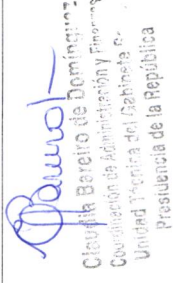 Claudia Bareiro de Domínguez
Coordinación de Administración y Finanzas
Unidad Técnica del Gabinete
Presidencia de la República